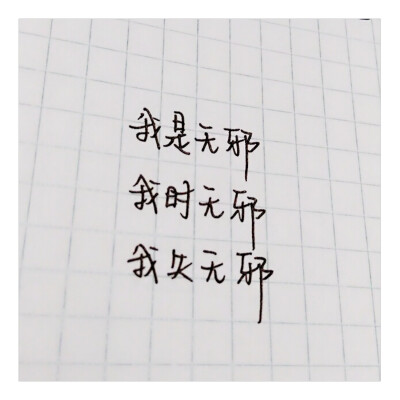 我是无邪
我时无邪
我失无邪